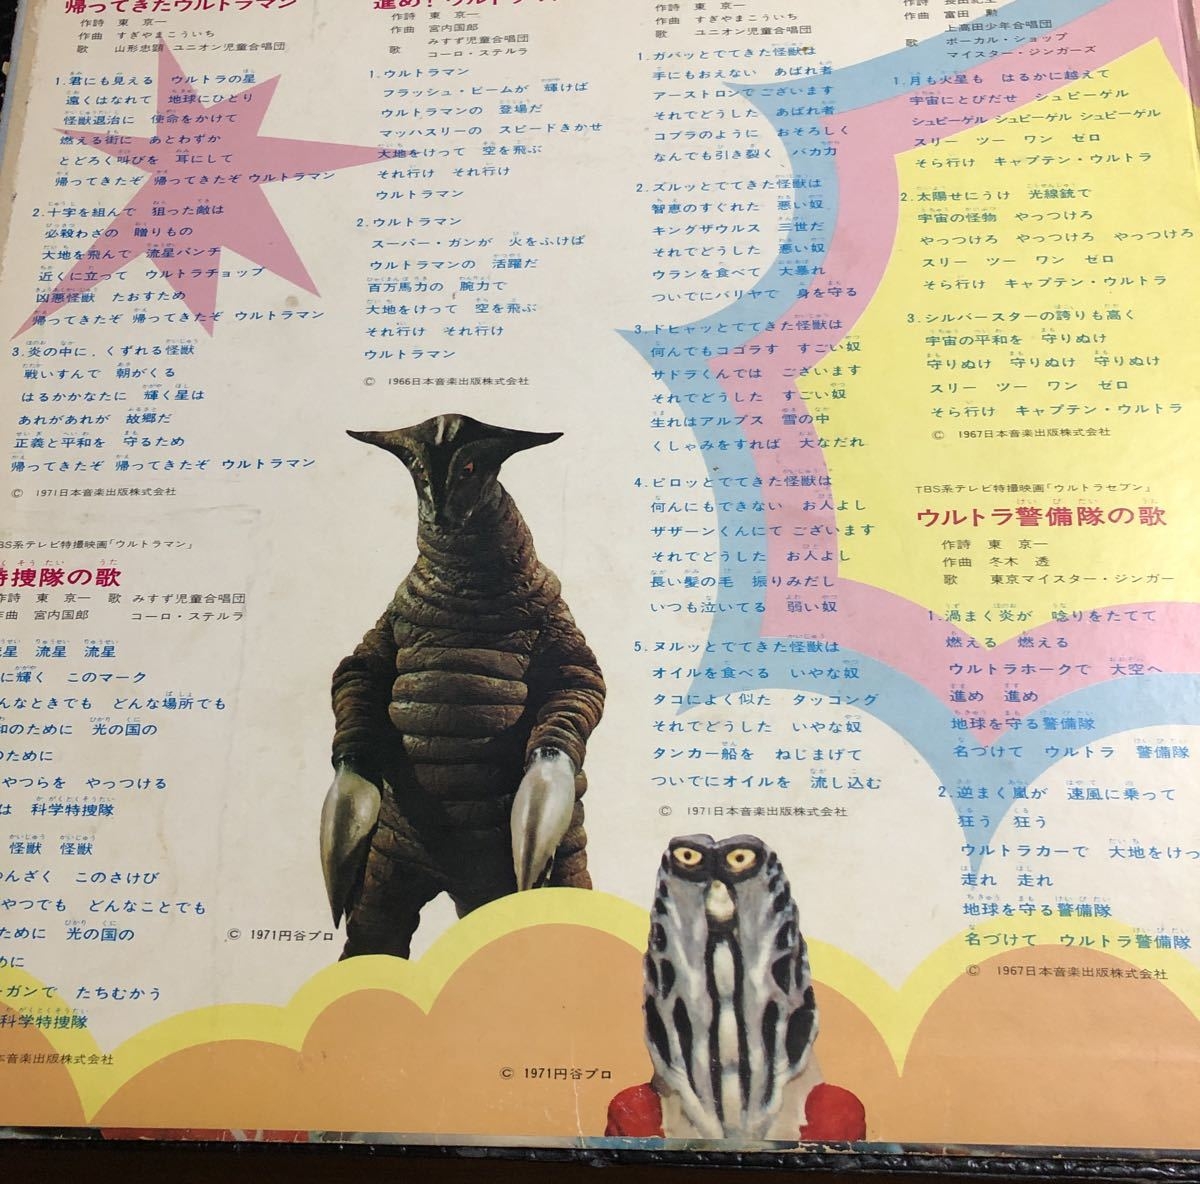 帰ってきたウルトラマン
作詩 東 京一
作曲 すぎやまこういち
歌 山形忠顕 ユニオン児童合唱団
1.君にも見える ウルトラの星
遠くはなれて 地球にひとり
怪獣退治に 使命をかけて
燃える街に あとわずか
とどろく叫びを 耳にして
帰ってきたぞ 帰ってきたぞ ウルトラマン
2.十字を組んで 狙った敵は
必殺わざの 贈りもの
大地を飛んで 流星パンチ
近くに立って ウルトラチョップ
凶悪怪獣 たおすため
帰ってきたぞ 帰ってきたぞ ウルトラマン
3.炎の中に、くずれる怪獣
戦いすんで 朝がくる
はるかかなたに 輝く星は
あれがあれが 故郷だ
正義と平和を 守るため
帰ってきたぞ 帰ってきたぞ ウルトラマン
© 1971日本音楽出版株式会社
BS系テレビ特撮映画「ウルトラマン」
特捜隊の歌
作詩 東 京一 歌 みすず児童合唱団
作曲 宮内国郎 コーロ・ステルラ
流星 流星 流星
に輝く このマーク
んなときでも どんな場所でも
和のために 光の国の
のために
やつらを やっつける
は 科学特捜隊
怪獣 怪獣
んざく このさけび
やつでも どんなことでも
ために 光の国の
めに
ガンで たちむかう
科学特捜隊
本音楽出版株式会社
進め!ウルトラマン
作詩 東 京一
作曲 宮内国郎
みすず児童合唱団
歌 コーロ・ステルラ
1.ウルトラマン
フラッシュ・ビームが 輝けば
ウルトラマンの 登場だ
マッハスリーの スピードきかせ
大地をけって 空を飛ぶ
それ行け それ行け
ウルトラマン
2.ウルトラマン
スーパー・ガンが 火をふけば
ウルトラマンの 活躍だ
百万馬力の 腕力で
大地をけって 空を飛ぶ
それ行け それ行け
ウルトラマン
© 1966日本音楽出版株式会社
作曲 すぎやまこういち
歌 ユニオン児童合唱団
1.ガバッとでてきた怪獣は
手にもおえない あばれ者
アーストロンでございます
それでどうした あばれ者
コブラのように おそろしく
なんでも引き裂く バカ力
2.ズルッとでてきた怪獣は
智恵のすぐれた 悪い奴
キングザウルス 三世だ
それでどうした 悪い奴
ウランを食べて 大暴れ
ついでにバリヤで 身を守る
3.ドヒャッとでてきた怪獣は
何んでもコゴラす すごい奴
サドラくんでは ございます
それでどうした すごい奴
生れはアルプス 雪の中
くしゃみをすれば 大なだれ
4.ピロッとでてきた怪獣は
何んにもできない お人よし
ザザーンくんにて ございます
それでどうした お人よし
長い髪の毛 振りみだし
いつも泣いてる 弱い奴
5.ヌルッとでてきた怪獣は
オイルを食べる いやな奴
タコによく似た タッコング
それでどうした いやな奴
タンカー船を ねじまげて
ついでにオイルを 流し込む
© 1971日本音楽出版株式会社
作曲 富田 勲
上高田少年合唱団
歌 ボーカル・ショップ
マイスター・ジンガーズ
1.月も火星も はるかに越えて
宇宙にとびだせ シュピーゲル
シュピーゲル シュピーゲル シュピーゲル
スリー ツー ワン ゼロ
そら行け キャプテン・ウルトラ
2.太陽せにうけ 光線銃で
宇宙の怪物 やっつけろ
やっつけろ やっつけろ やっつけろ
スリー ツー ワン ゼロ
そら行け キャプテン・ウルトラ
3.シルバースターの誇りも高く
宇宙の平和を 守りぬけ
守りぬけ 守りぬけ 守りぬけ
スリー ツー ワン ゼロ
そら行け キャプテン・ウルトラ
© 1967日本音楽出版株式会社
TBS系テレビ特撮映画「ウルトラセブン」
ウルトラ警備隊の歌
作詩 東 京一
作曲 冬木 透
歌 東京マイスター・ジンガー
1.渦まく炎が 唸りをたてて
燃える 燃える
ウルトラホークで 大空へ
進め 進め
地球を守る警備隊
名づけて ウルトラ 警備隊
2.逆まく嵐が 速風に乗って
狂う 狂う
ウルトラカーで 大地をけっ
走れ 走れ
地球を守る警備隊
名づけて ウルトラ警備隊
© 1967日本音楽出版株式会社
© 1971円谷プロ
© 1971円谷プロ